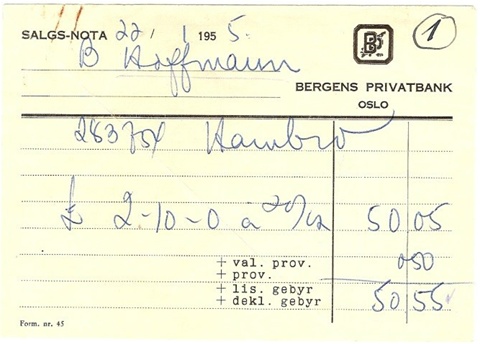 SALGS-NOTA 22/1 1955. 1
B Hoffmann
BP
BERGENS PRIVATBANK
OSLO
Hambro
£ 2-10-0 à 20/02 50 05
+ val. prov. 050
+ prov.
+ lis. gebyr
+ dekl. gebyr 50 55
Form. nr. 45